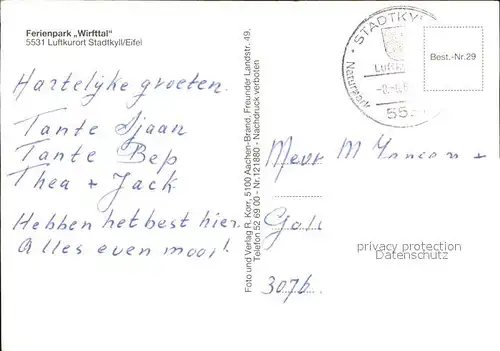 Ferienpark „Wirfttal“
5531 Luftkurort Stadtkyll/Eifel
Hartelijke groeten.
Tante Sjaan
Tante Bep
Thea + Jack
Hebben het best hier.
Alles even mooi!
Foto und Verlag R. Korr, 5100 Aachen-Brand, Freunder Landstr. 49,
Telefon 52 69 00 - Nr. 121880 - Nachdruck verboten
STADTKY
Naturpark
55
Best.-Nr. 29
Mevr M
307b
privacy protection
Datenschutz